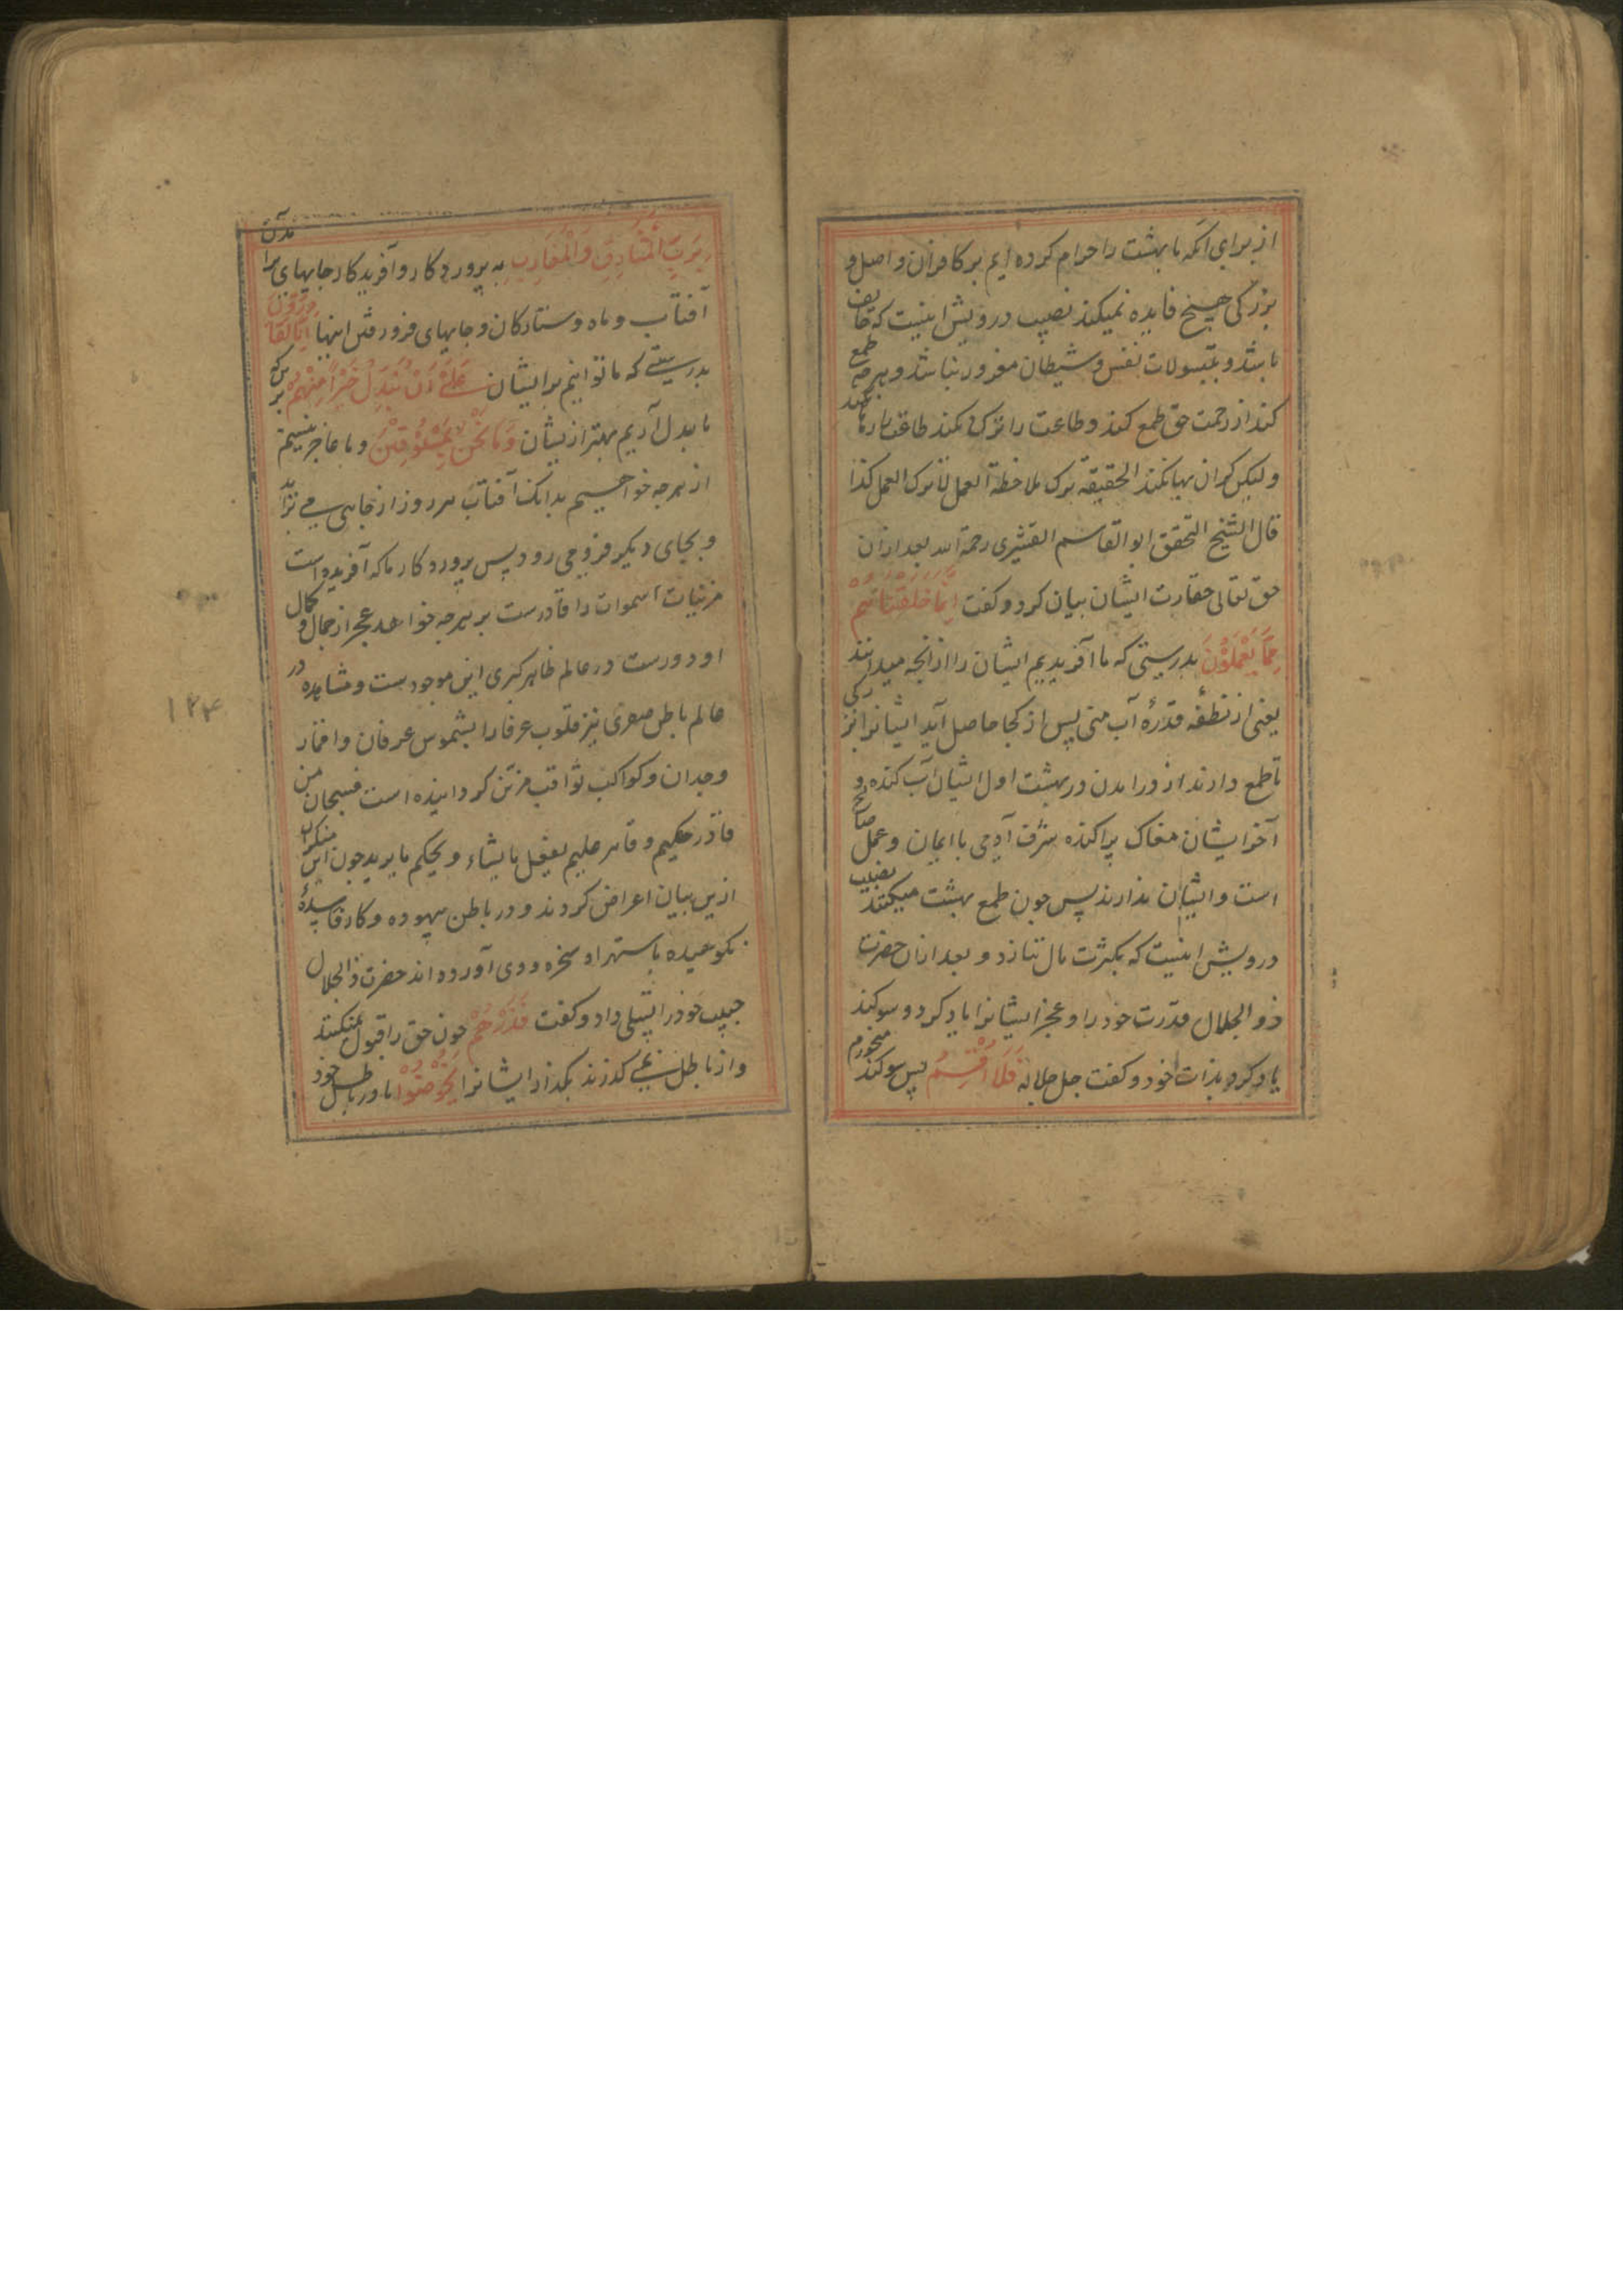 از برای آنکه ما بهشت را حرام کرده ایم بر کافران و اصل و
بزرکی هیچ فایده نمیکند نصیب درویش اینیست که خایف
باشد و بتسولات نفس و شیطان مغرور نباشد و بهرچه طمع
کند از رحمت حق طمع کند و طاعت را ترک نکند طاعت
ولیکن الحقیقة ترک ملاحظة العمل لا ترک العمل کذا
قال الشیخ المحقق ابو القاسم القشیری رحمة الله بعد ازان
حق تعالی حقارت ایشان بیان کرد و کفت اِنَّا خَلَقْنَاهُمْ
مِمَّا يَعْلَمُوْنَ بدرستی که ما آفریدیم ایشان را از انچه میدانند
یعنی از نطفه قذرهٔ آب منی پس از کجا حاصل آید ایشانرا
تا طمع دارند از درامدن در بهشت اول ایشان آب کنده و
آخر ایشان مغاک پراکنده شرف آدمی با ایمان و عمل صالح
است و ایشان ندارند پس چون طمع بهشت میکنند نصیب
درویش اینیست که بکثرت مال ننازد و بعد ازان حضرت
ذو الجلال قدرت خود را و عجز ایشانرا یاد کرد و سوکند
یاد کرد بذات خود و کفت جل جلاله فَلَا اُقْسِمُ پس سوکند میخورم
بِرَبِّ الْمَشَارِقِ وَالْمَغَارِبِ به پروردکار و آفریدکار جایهای برآمدن
آفتاب و ماه و ستارکان و جایهای فرورفتن اینها اِنَّا لَقَادِرُوْنَ
بدرستی که ما تواناییم بر ایشان عَلٰى اَنْ نُبَدِّلَ خَيْرًا مِنْهُمْ بر آنکه
ما بدل آریم بهتر ازیشان وَمَا نَحْنُ بِمَسْبُوْقِيْنَ و ما عاجز نیستیم
از هرچه خواهیم بدانک آفتاب هر روز از جایی می برآید
و بجای دیکر فرو می رود پس پروردکار ما که آفریده است
مزینات اسموات را قادرست بر هرچه خواهد عجز از جمال و کمال
او دورست در عالم ظاهر کبری این موجود ست و مشاهده در
عالم باطن صغری نیز قلوب عرفا را بشموس عرفان و اقمار
وجدان و کواکب ثواقب مزین کردانیده است فسبحان من
قادر حکیم و قاهر علیم یفعل ما یشاء و یحکم ما یرید چون این منکران
ازین بیان اعراض کردند و در باطن بیهوده و کار
نکوهیده باستهزا و سخره روی آورده اند حضرت ذو الجلال
حبیب خود را تسلی داد و کفت فَذَرْهُمْ چون حق را قبول نمیکنند
و از باطل نمی کذرند بکذار ایشانرا يَخُوْضُوْا تا در باطل خود
۱۲۴